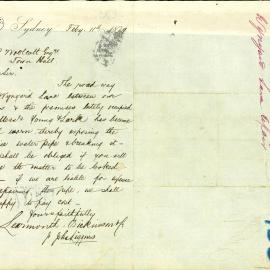 Sydney Feby. 11th 1879
Woolcott Esqre
Town Hall
Sir
The road way
Wynyard Lane between our
& the premises lately occupied
Young & Lark has become
worn thereby exposing the
water pipe & breaking it
shall be obliged if you will
the matter to be looked
if we are liable for expense
repairing the pipe, we shall
happy to pay cost
Yours faithfully
Learmonth Dickinson & Co
Wynyard Lane